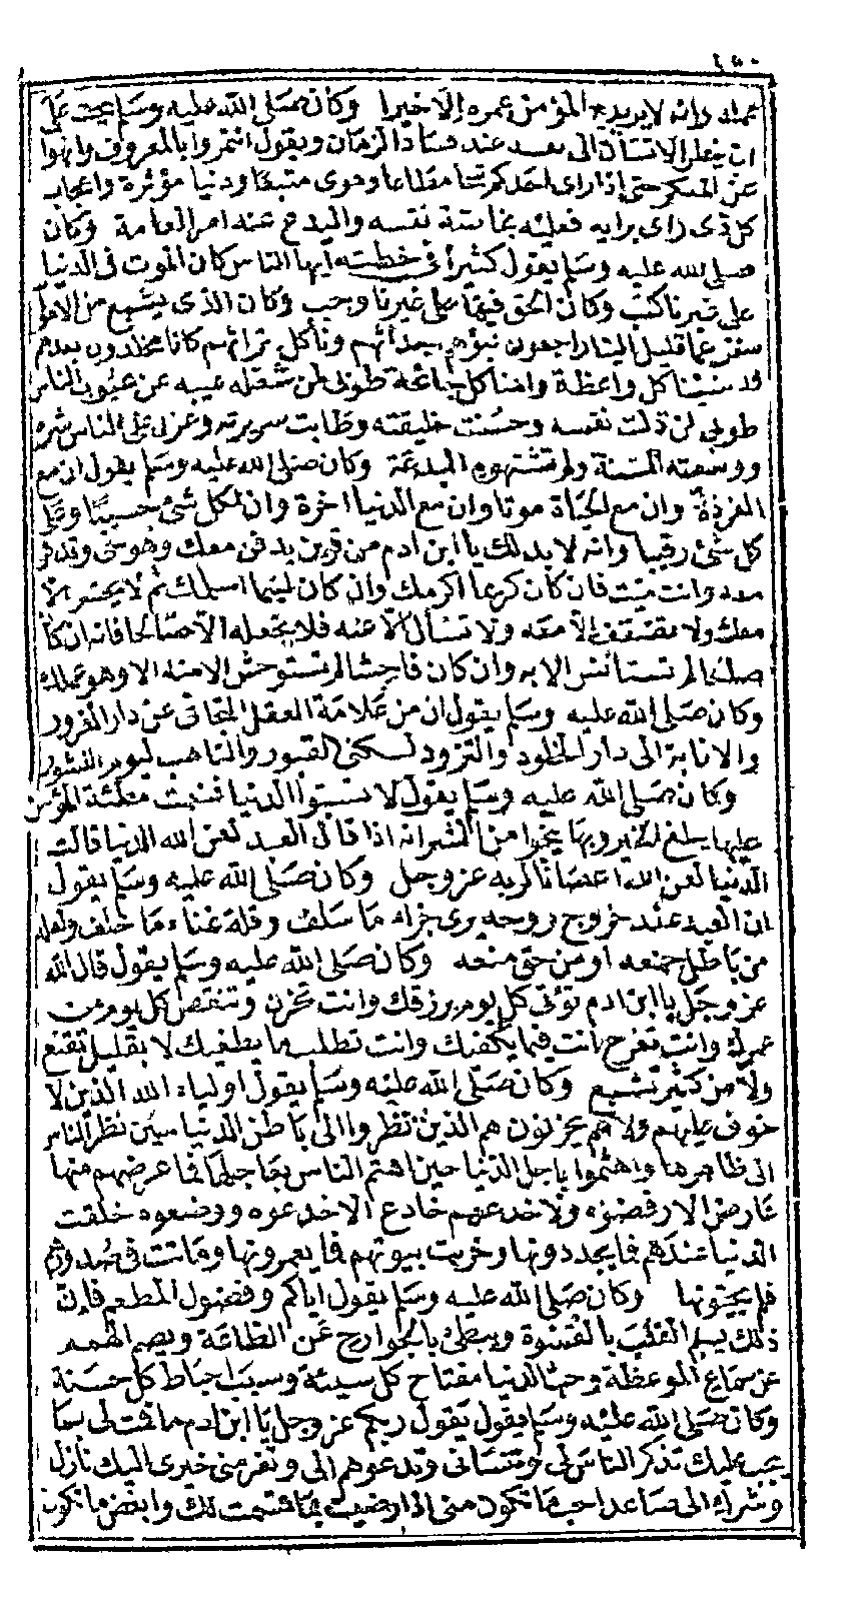 عمله وانه لا يزيد المؤمن عمره الا خيرا وكان صلى الله عليه وسلم يحث على
عند فساد الزمان ويقول ائتمروا بالمعروف وانهوا
عن المنكر حتى اذا راى احدكم شحا مطاعا وهوى متبعا ودنيا مؤثرة واعجاب
كل ذى راى برايه فعليه بخاصة نفسه وليدع عنه امر العامة وكان
صلى الله عليه وسلم يقول كثيرا فى خطبته ايها الناس كان الموت فى الدنيا
على غيرنا كتب وكان الحق فيها على غيرنا وجب وكان الذى يشيع من الاموات
سفر عما قليل الينا راجعون نبوئهم اجداثهم وناكل تراثهم كانا مخلدون بعدهم
قد نسينا كل واعظة وامنا كل جائحة طوبى لمن شغله عيبه عن عيوب الناس
طوبى لمن ذلت نفسه وحسنت خليقته وطابت سريرته وعزل على الناس شره
ووسعته السنة ولم تستهوه البدعة وكان صلى الله عليه وسلم يقول ان مع
العز ذلة وان مع الحياة موتا وان مع الدنيا اخرة وان لكل شئ حسيبا وعلى
كل شئ رقيبا وانه لا بد لك يا ابن ادم من قرين يدفن معك وهو حى وتدفن
معه وانت ميت فان كان كريما اكرمك وان كان لئيما اسلمك ثم لا يحشر الا
معك ولا الا معه ولا تسأل الا عنه فلا تجعله الا صالحا فانه ان كان
صالحا لم تستانس الا به وان كان فاحشا لم تستوحش الا منه الا وهو عملك
وكان صلى الله عليه وسلم يقول ان من علامة العقل التجافى عن دار الغرور
والانابة الى دار الخلود والتزود لسكنى القبور والتاهب ليوم النشور
وكان صلى الله عليه وسلم يقول لا تسبوا الدنيا فنعمت مطية المؤمن
عليها يبلغ الخير وبها ينجوا من الشر انه اذا قال العبد لعن الله الدنيا قالت
الدنيا لعن الله اعصانا لربه عز وجل وكان صلى الله عليه وسلم يقول
ان العبد عند خروج روحه يرى جزاء ما سلف وقلة غناء ما خلف ولعله
من باطل جمعه او من حق منعه وكان صلى الله عليه وسلم يقول قال الله
عز وجل يا ابن ادم تؤتى كل يوم برزقك وانت تحزن وتنقص كل يوم من
عمرك وانت تفرح انت فيما يكفيك وانت تطلب ما يطغيك لا بقليل تقنع
ولا من كثير تشبع وكان صلى الله عليه وسلم يقول اولياء الله الذين لا
خوف عليهم ولا هم يحزنون هم الذين نظروا الى باطن الدنيا حين نظر الناس
الى ظاهرها واهتموا باجل الدنيا حين اهتم الناس بعاجلها فما عرضهم منها
عارض الا رفضوه ولا خدعهم خادع الا خدعوه ووضعوه خلقت
الدنيا عندهم فما يجددونها وخربت بيوتهم فما يعمرونها وماتت فى صدورهم
فما يحيونها وكان صلى الله عليه وسلم يقول اياكم وفضول المطعم فان
ذلك يسم القلب بالقسوة ويبطئ بالجوارح عن الطاعة ويصم الهمم
عن سماع الموعظة وحب الدنيا مفتاح كل سيئة وسبب احباط كل حسنة
وكان صلى الله عليه وسلم يقول يقول ربكم عز وجل يا ابن ادم ما قمت لى بما
يجب عليك تذكر الناس لى وتنسانى وتدعوهم الى وتفر منى خيرى اليك نازل
وشرك الى صاعد احب ما تكون منى اذا رضيت بما قسمت لك وابغض ما تكون